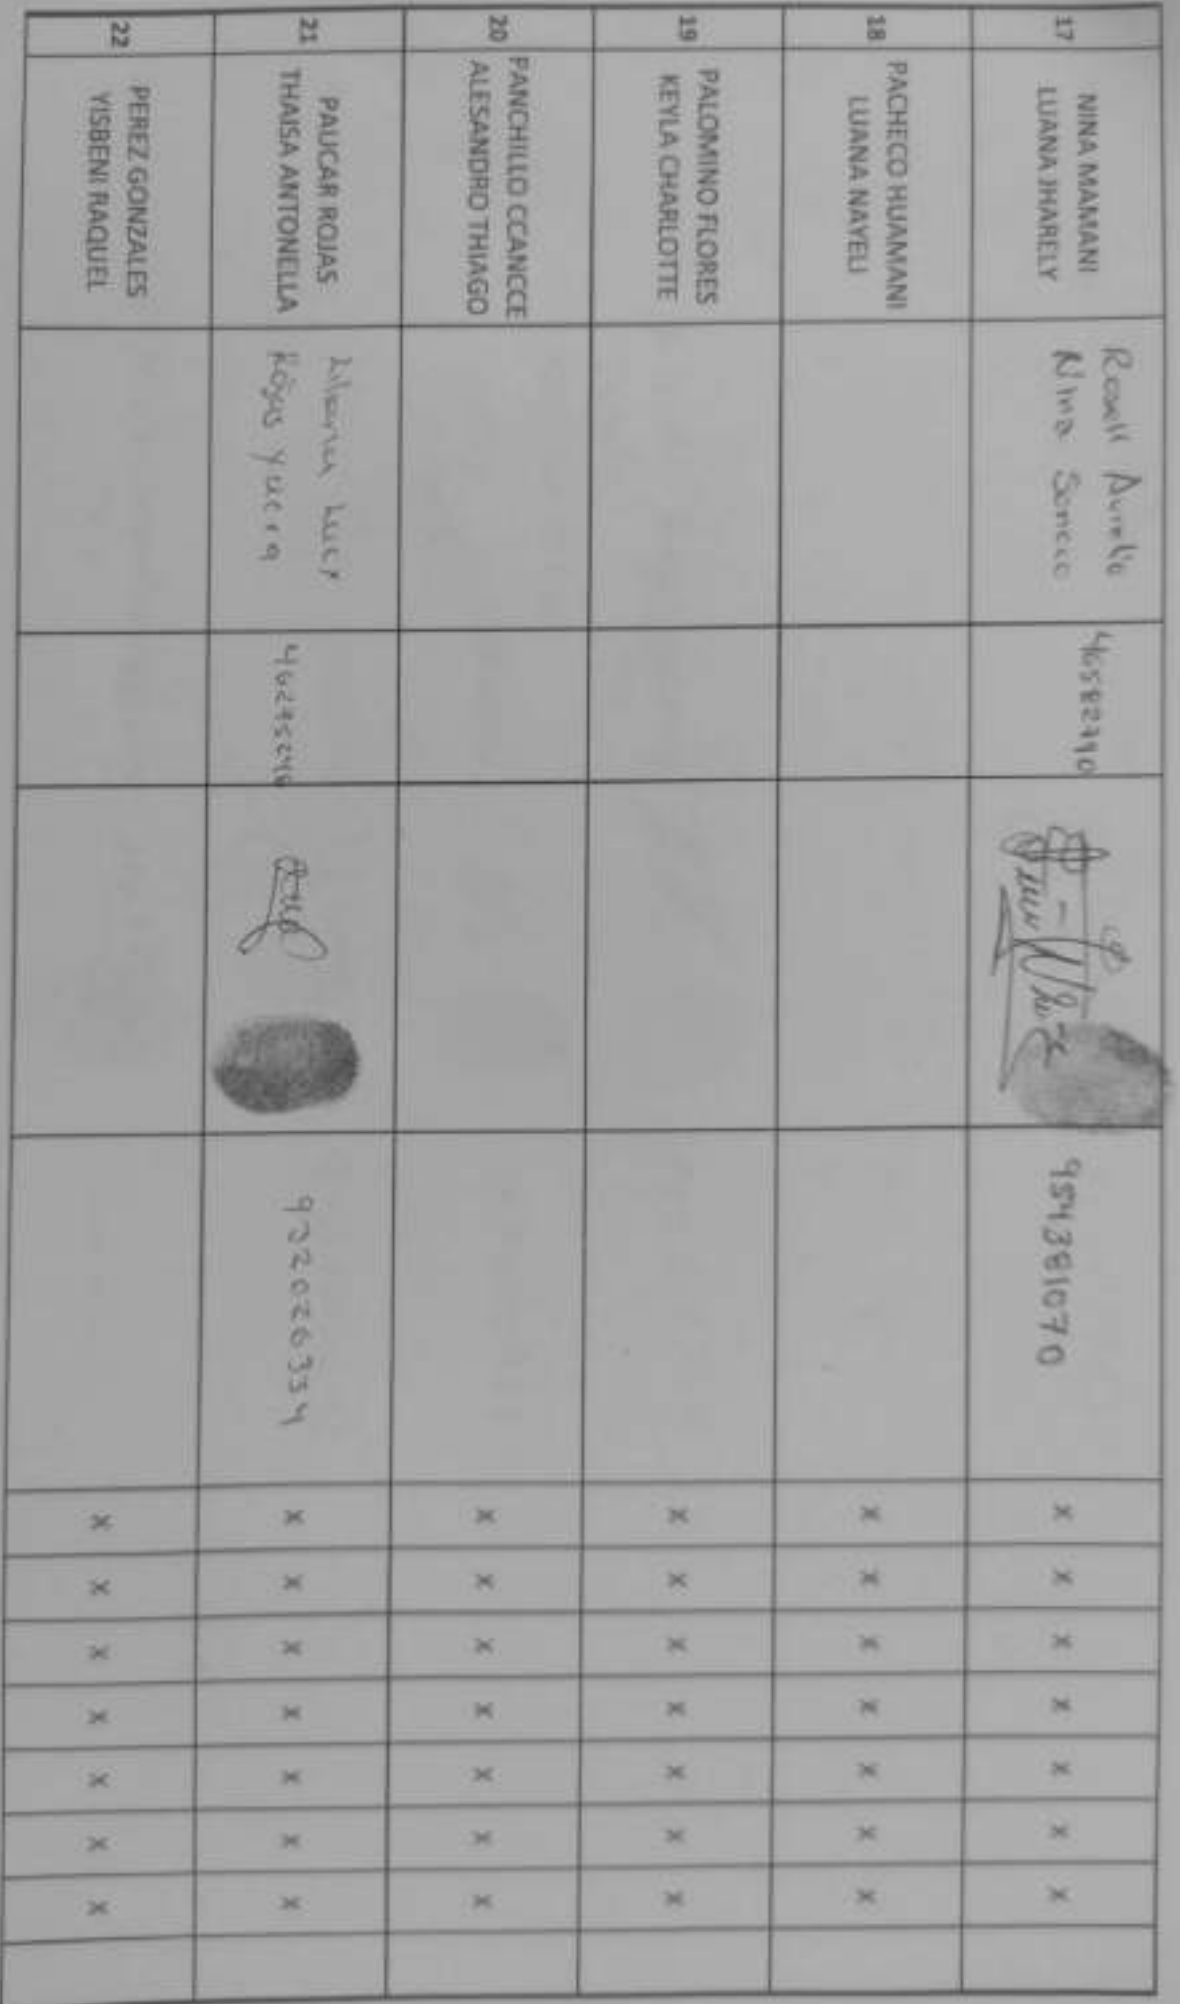 17 NINA MAMANI
LUANA JHARELY
Rosell Aurelio
Nina Soncco
46582790
954381070
X X X X X X X
18 PACHECO HUAMANI
LUANA NAYELI
X X X X X X X
19 PALOMINO FLORES
KEYLA CHARLOTTE
X X X X X X X
20 PANCHILLO CCANCCE
ALESANDRO THIAGO
X X X X X X X
21 PAUCAR ROJAS
THAISA ANTONELLA
Liliana Lucy
Rojas Yucra
932026334
X X X X X X X
22 PEREZ GONZALES
YISBENI RAQUEL
X X X X X X X